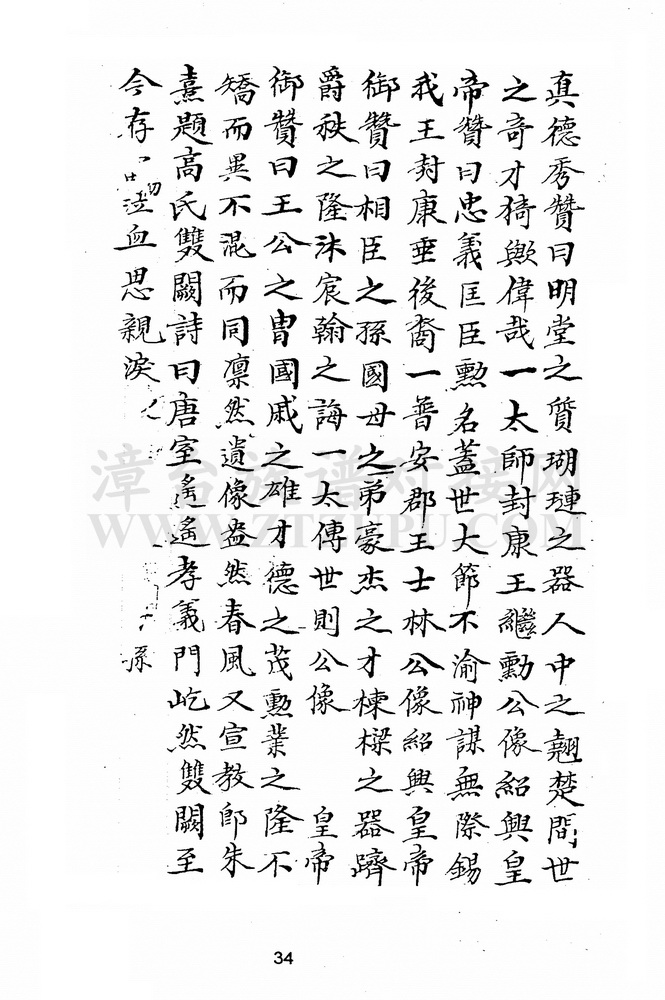 真德秀贊曰明堂之質瑚璉之器人中之翹楚間世
之奇才猗歟偉哉一太師封康王繼勳公像紹興皇
帝贊曰忠義匡臣勲名蓋世大節不渝神謀無際錫
我王封康垂後裔一普安郡王士林公像紹興皇帝
御贊曰相臣之孫國母之弟豪杰之才棟樑之器躋
爵秩之隆沐宸翰之誨一太傅世則公像 皇帝
御贊曰王公之胄國戚之雄才德之茂勲業之隆不
矯而異不混而同凛然遺像盎然春風又宣教郎朱
熹題高氏雙闕詩曰唐室遙遙孝義門屹然雙闕至
今存 血思親淚 孫
漳台族谱对接网
WWW.ZTZUPU.COM
34